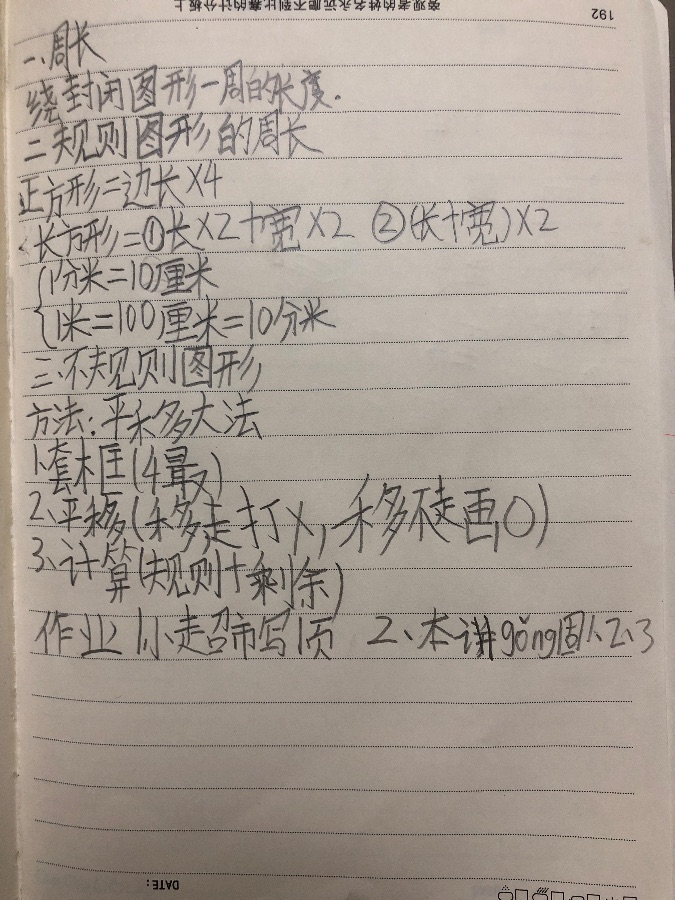 旁观者的姓名永远爬不到比赛的计分板上
192
一、周长
绕封闭图形一周的长度.
二规则图形的周长
正方形=边长×4
长方形=①长×2十宽×2 ②(长十宽)×2
1分米=10厘米
1米=100厘米=10分米
三、不规则图形
方法:平移大法
1.套框(4最)
2、平移(移走打×,移不走画○)
3、计算(规则十剩余)
作业 1小超市写1页 2、本讲gǒng固1、2、3
DATE: